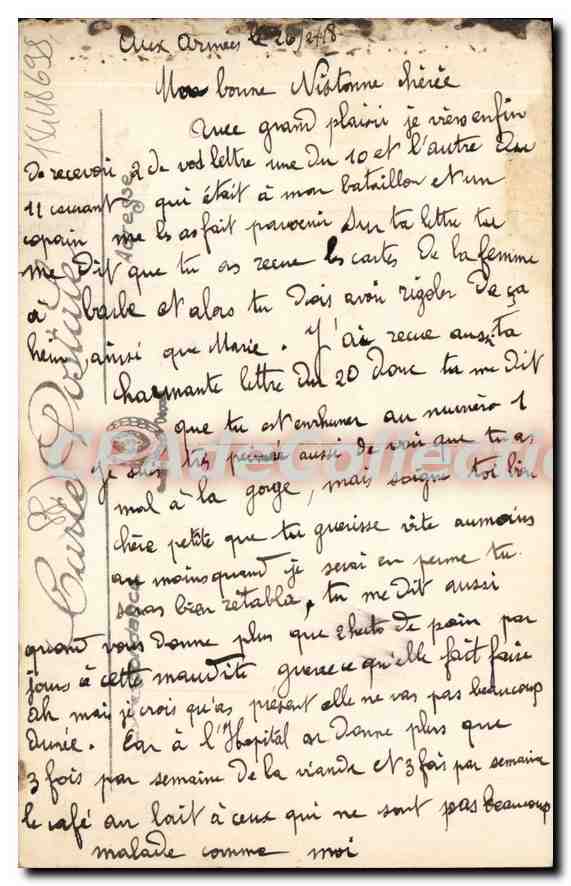 Aux Armées le 26/2/18
Ma bonne chérie
grand plaisir je viens enfin
De recevoir 2 de vos lettre une du 10 et l'autre du
11 courant qui était à mon bataillon et un
copain me les as fait parvenir Sur ta lettre tu
me Dit que tu as recue les cartes De la femme
à barbe et alors tu Dois avoir rigoler De ça
hein, ainsi que Marie. J'ai recue aussi ta
charmante lettre Du 20 Donc tu me Dit
que tu est enrhumer au numéro 1
je suis très peinée aussi de voir que tu as
mal à la gorge, mais soigne toi bien
chère petite que tu guerisse vite aumoins
au moins quand je serai en perme tu
seras bien retablie, tu me Dit aussi
quand vous Donne plus que 2 hecto De pain par
jours à cette maudite guerre ce qu'elle fait faire
Ah mais je crois qu'as présent elle ne vas pas beaucoup
Durée. Car à l'Hopital on Donne plus que
3 fois par semaine De la viande et 3 fois par semaine
le café au lait à ceux qui ne sont pas beaucoup
malade comme moi
Carte Postale
Adresse
Correspondance
1418698
CPAdeCollection